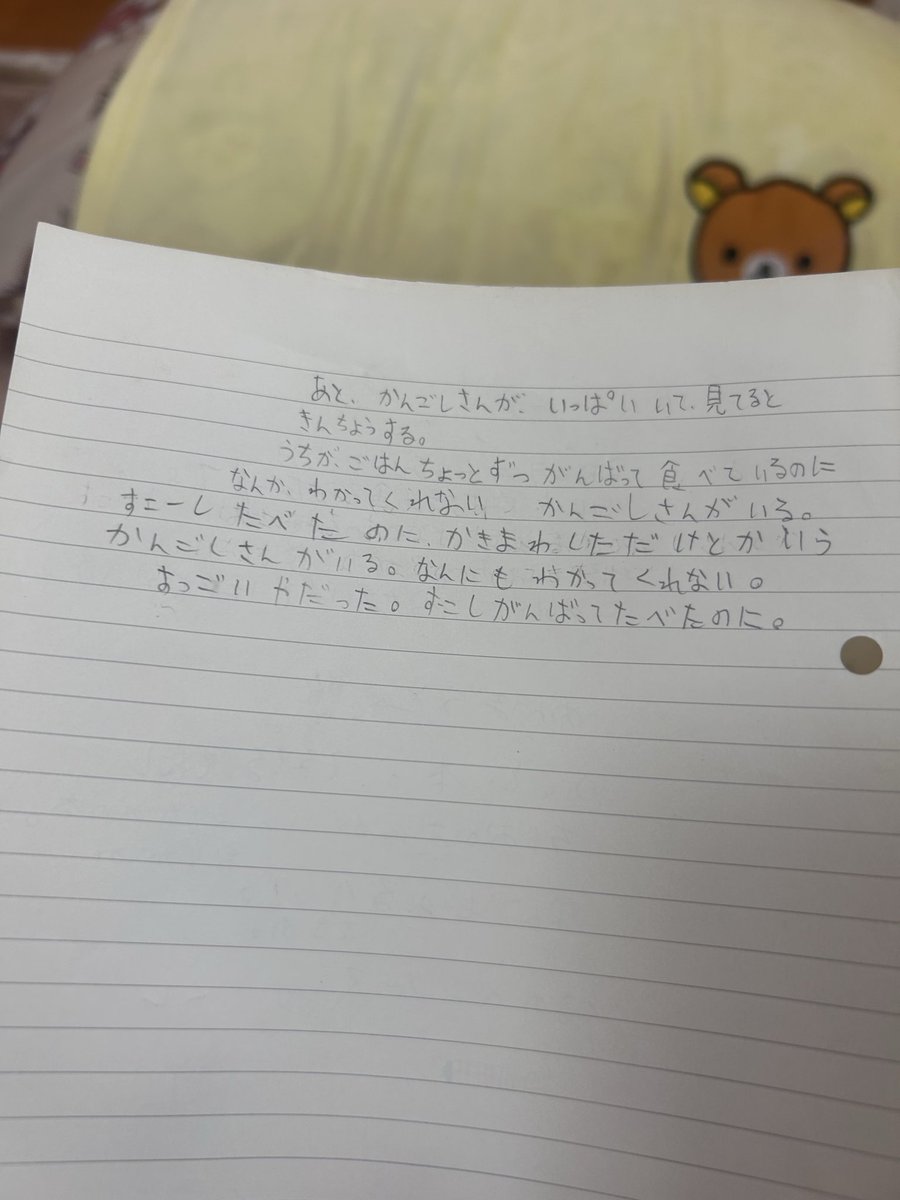 あと、かんごしさんが、いっぱいいて、見てると
きんちょうする。
うちが、ごはんちょっとずつがんばって食べているのに
なんか、わかってくれない かんごしさんがいる。
すこーしたべたのに、かきまわしただけとかいう
かんごしさんがいる。なんにもわかってくれない。
すっごいやだった。すこしがんばってたべたのに。